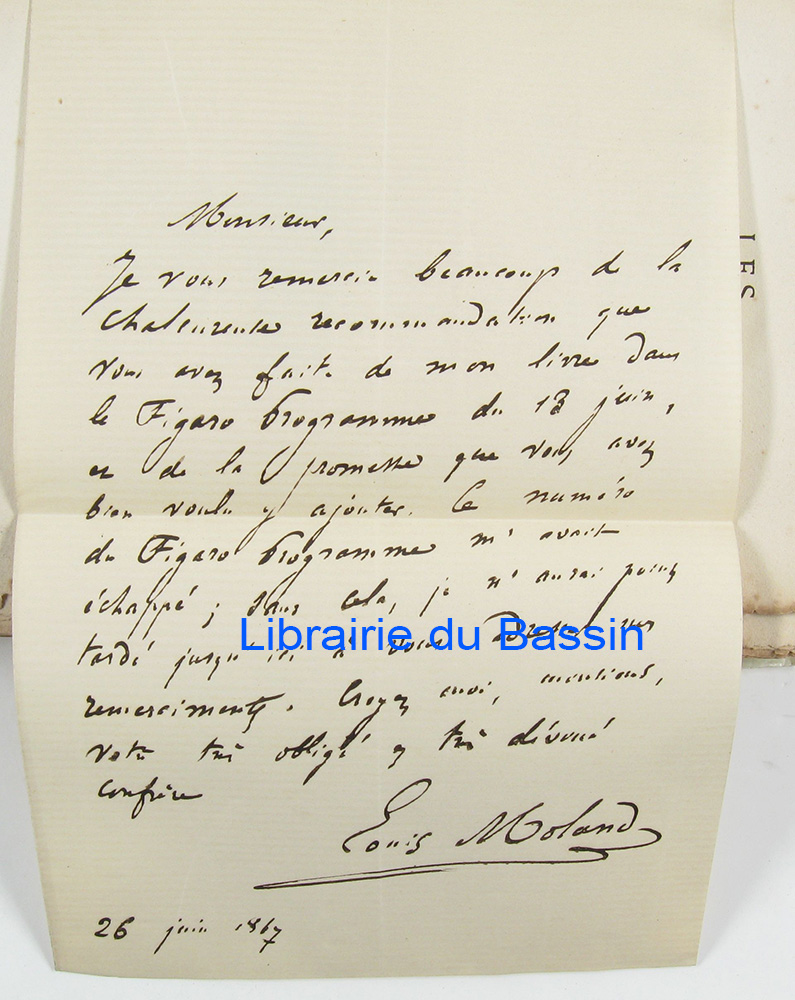 Monsieur,
Je vous remercie beaucoup de la
chaleureuse recommandation que
vous avez faite de mon livre dans
le Figaro Programme du 13 juin,
et de la promesse que vous avez
bien voulu y ajouter. Ce numéro
du Figaro Programme m'avait
échappé ; sans cela, je n'aurai point
tardé jusqu'ici à vous adresser mes
remerciments. Croyez moi, monsieur,
votre très obligé et très dévoué
confrère
Louis Moland
26 juin 1867
LES
Librairie du Bassin